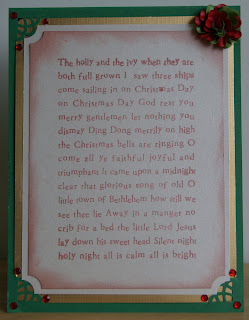 The holly and the ivy when they are
both full grown I saw three ships
come sailing in on Christmas Day
on Christmas Day God rest you
merry gentlemen let nothing you
dismay Ding Dong merrily on high
the Christmas bells are ringing O
come all ye faithful joyful and
triumphant It came upon a midnight
clear that glorious song of old O
little town of Bethlehem how still we
see thee lie Away in a manger no
crib for a bed the little Lord Jesus
lay down his sweet head Silent night
holy night all is calm all is bright